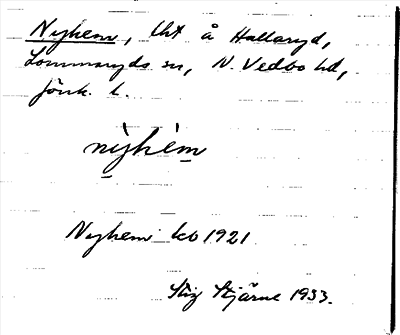 Nyhem, lht å Hallaryd,
Lommaryds sn, N. Vedbo hd,
Jönk. l.
nỳhèm
Nyhem kb 1921
Stig Stjärne 1933.